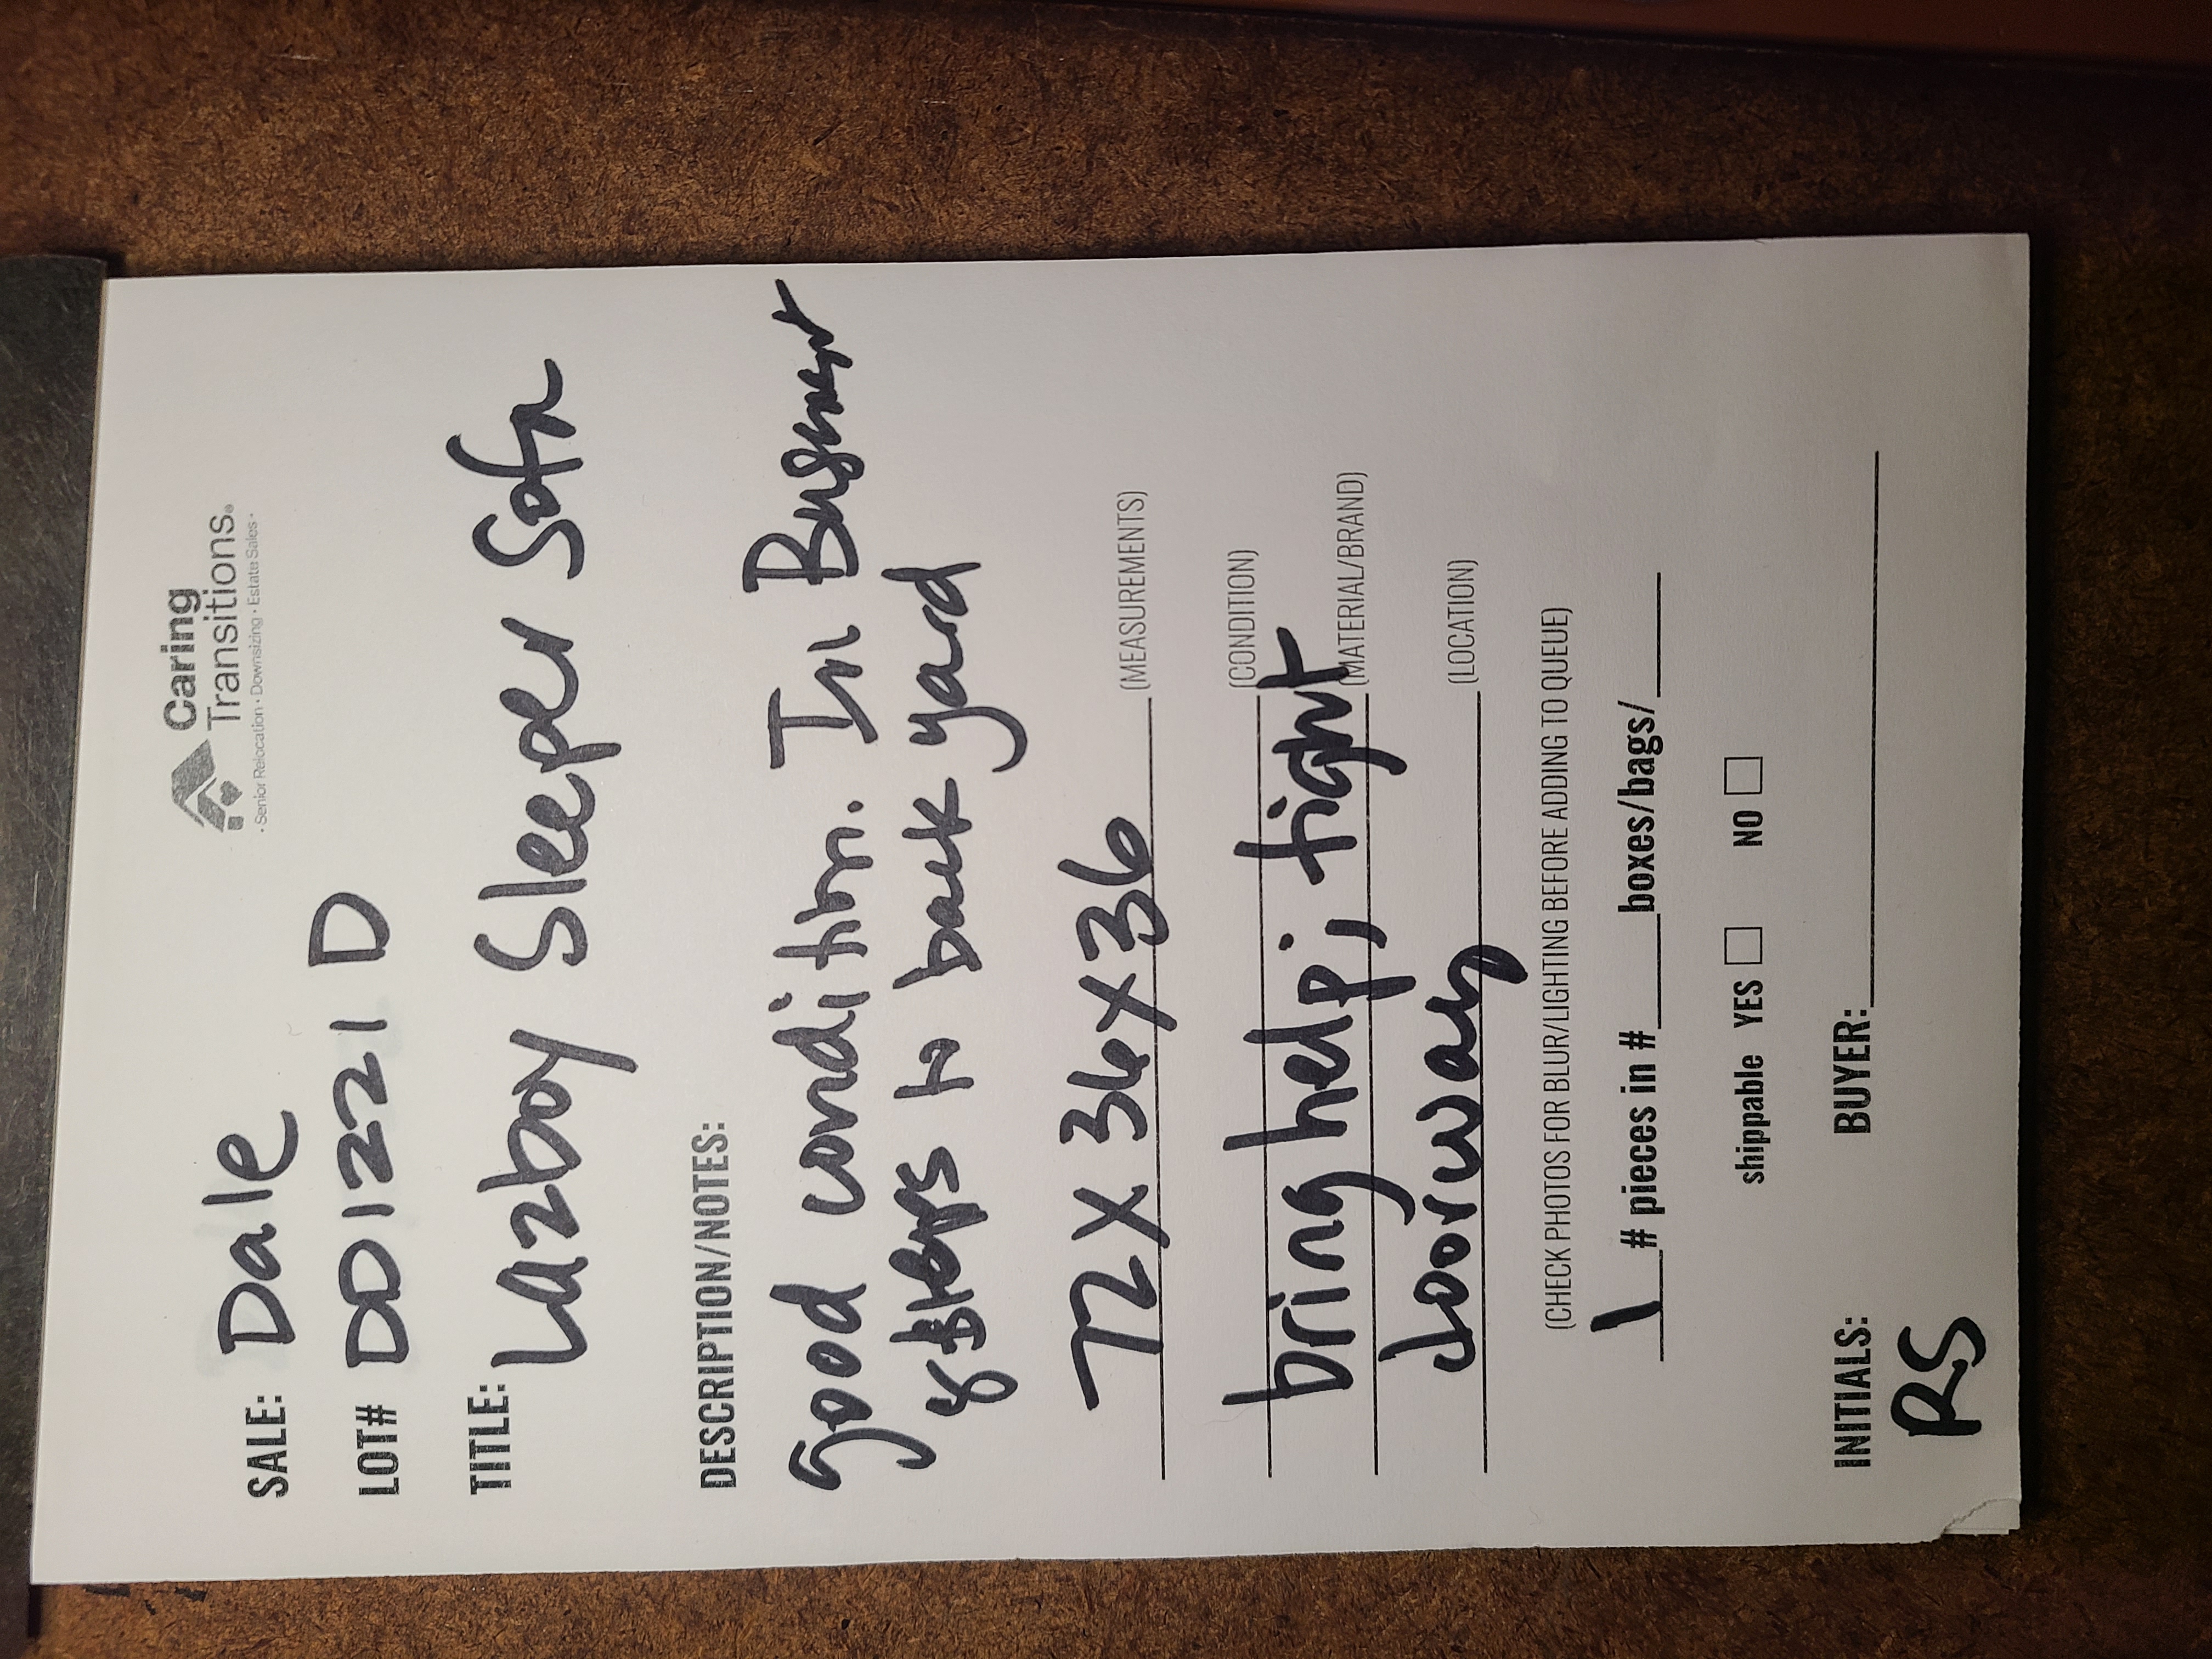 Caring
Transitions®
• Senior Relocation • Downsizing • Estate Sales •
SALE: Dale
LOT# DD1221 D
TITLE: Lazboy Sleeper Sofa
DESCRIPTION/NOTES:
good condition. In Basement
8 steps to back yard
72 X 36 X 36 (MEASUREMENTS)
(CONDITION)
bring help; tight (MATERIAL/BRAND)
doorway (LOCATION)
(CHECK PHOTOS FOR BLUR/LIGHTING BEFORE ADDING TO QUEUE)
1 # pieces in # boxes/bags/
shippable YES NO
INITIALS: BUYER:
RS